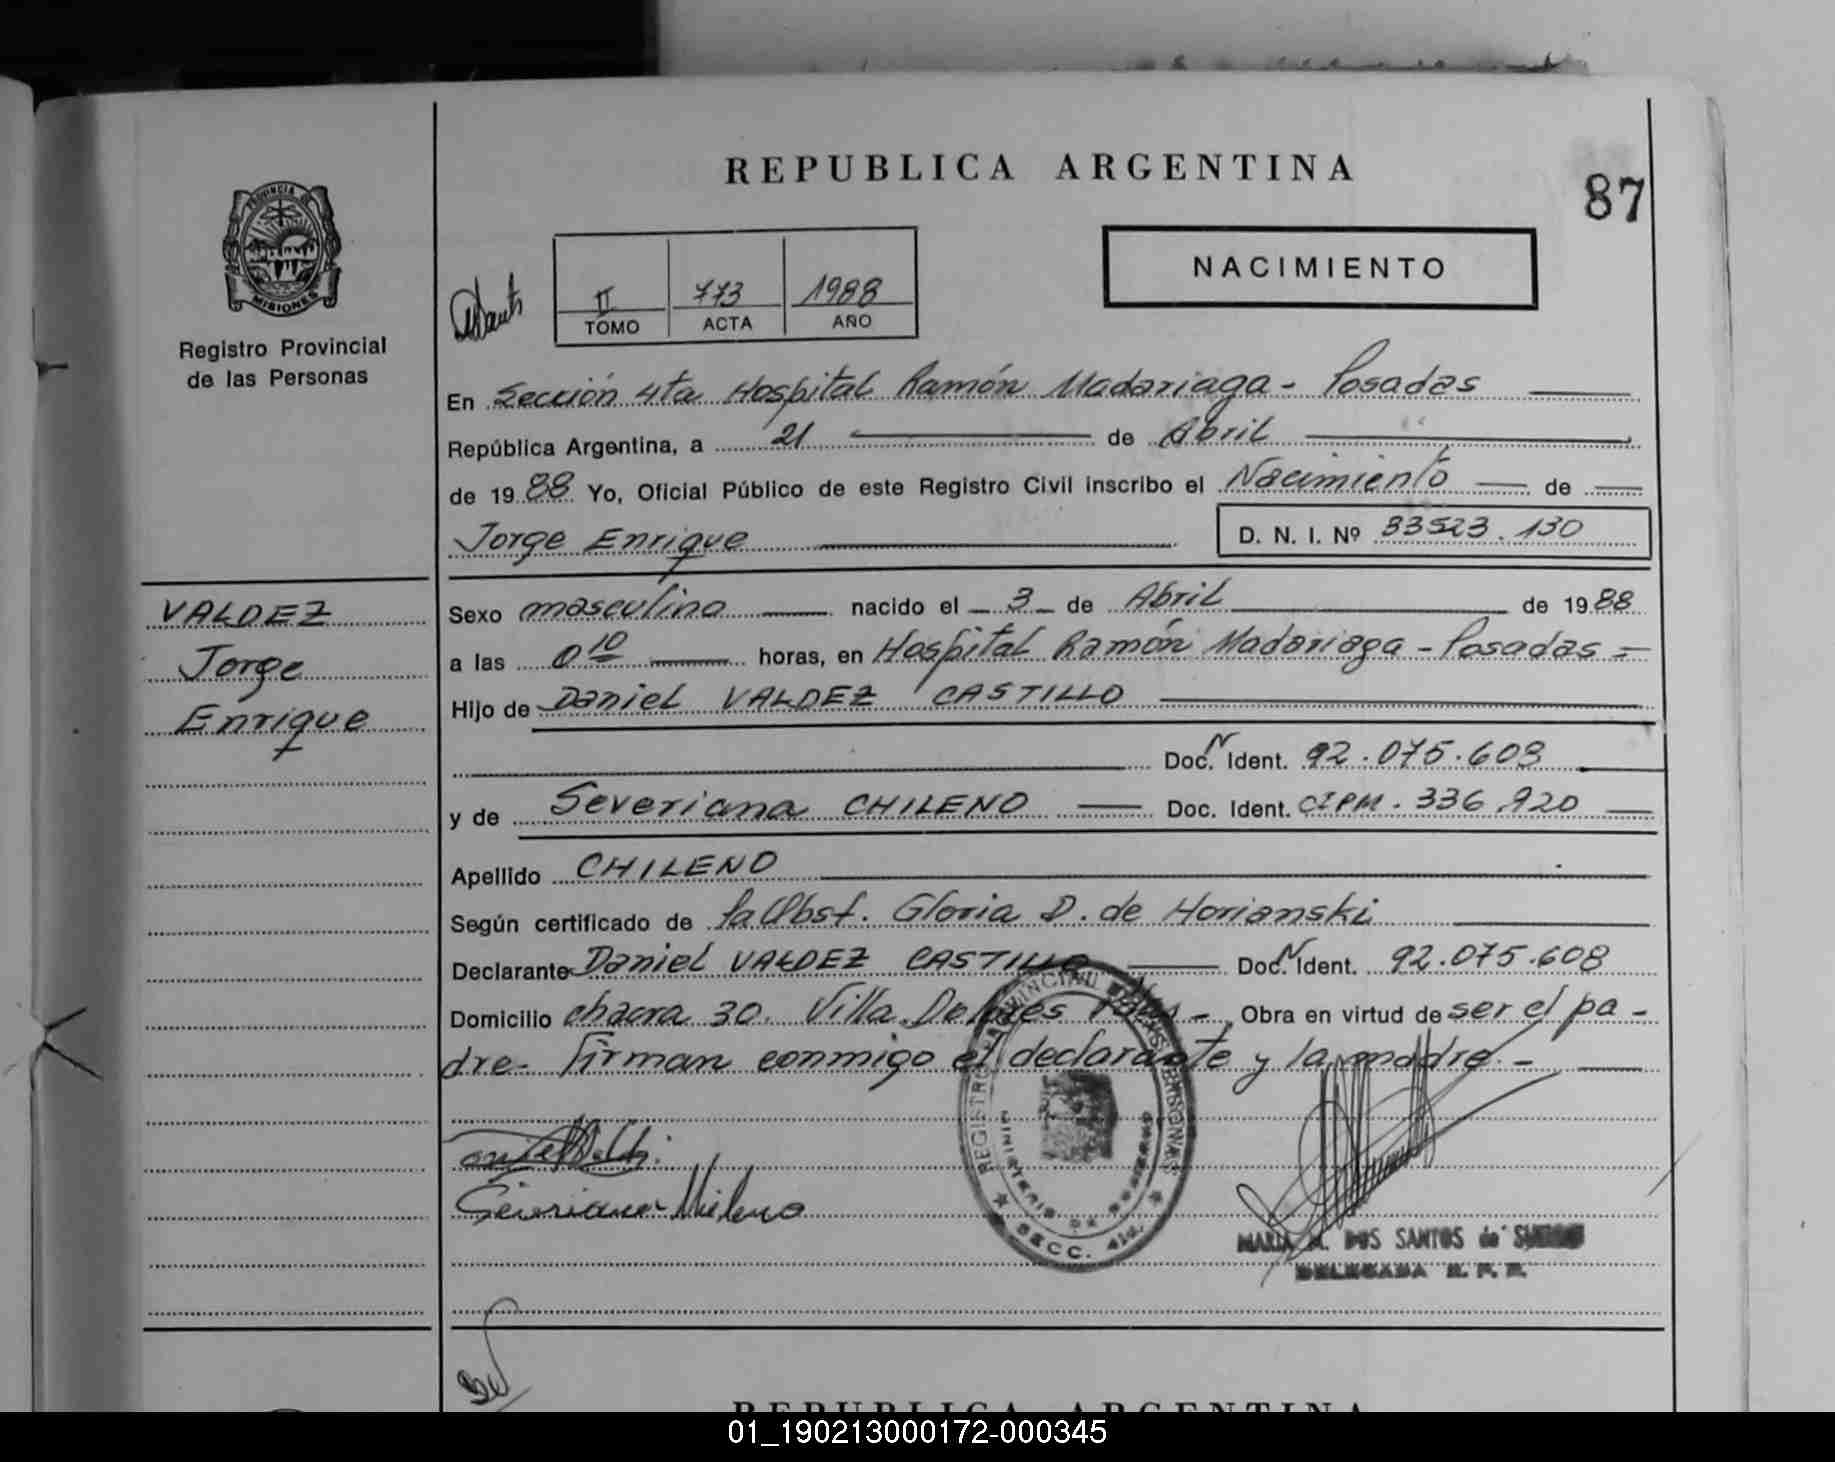 REPUBLICA ARGENTINA
87
PROVINCIA DE
MISIONES
Registro Provincial
de las Personas
NACIMIENTO
II 773 1988
TOMO ACTA AÑO
En Sección 4ta Hospital Ramón Madariaga - Posadas
República Argentina, a 21 de Abril
de 1988 Yo, Oficial Público de este Registro Civil inscribo el Nacimiento de
Jorge Enrique D. N. I. Nº 33523.130
VALDEZ
Jorge
Enrique
Sexo masculino nacido el 3 de Abril de 1988
a las 0 10 horas, en Hospital Ramón Madariaga - Posadas =
Hijo de Daniel VALDEZ CASTILLO
Doc. N Ident. 92.075.608
y de Severiana CHILENO Doc. Ident. CIPM. 336.920
Apellido CHILENO
Según certificado de la Obst. Gloria D. de Horianski
Declarante Daniel VALDEZ CASTILLO Doc. N Ident. 92.075.608
Domicilio chacra 30. Villa Dolores Pdas - Obra en virtud de ser el pa -
dre - Firman conmigo el declarante y la madre. -
REGISTRO PROVINCIAL DE LAS PERSONAS
MINISTERIO DE GOBIERNO
SECC. 4ta.
Severiana Chileno
MARIA M. DOS SANTOS de
DELEGADA R. P. P.
REPUBLICA ARGENTINA
01_190213000172-000345